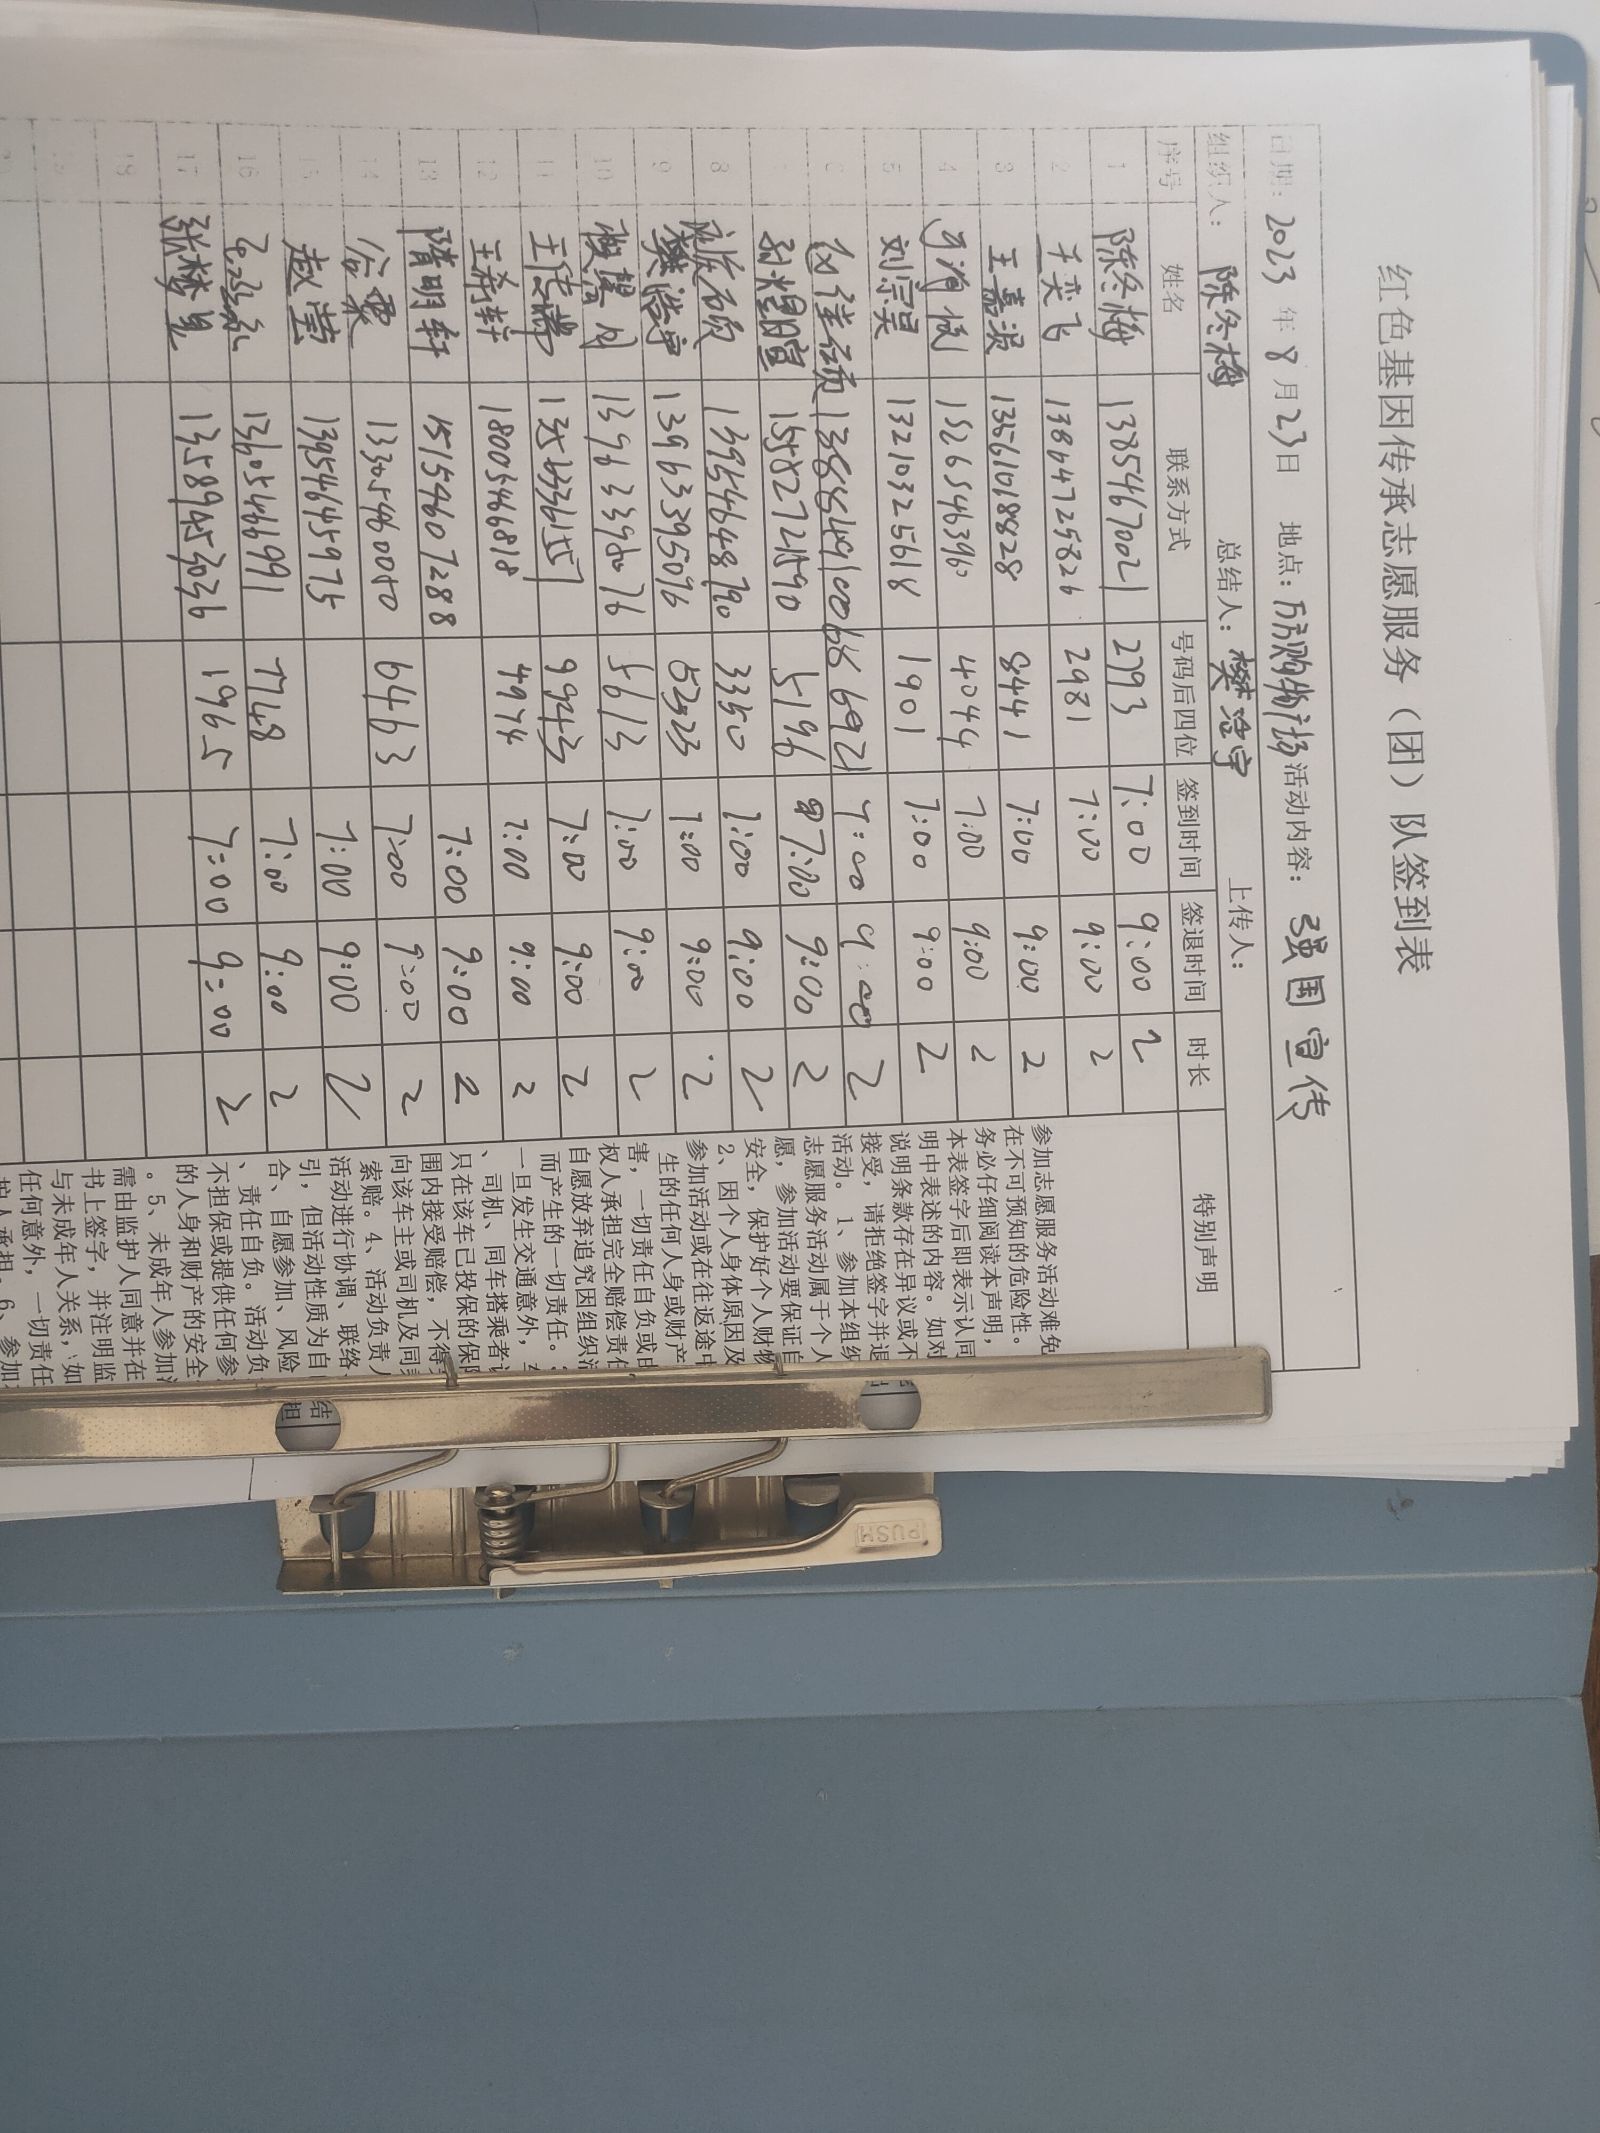 红色基因传承志愿服务（团）队签到表
日期：2023年8月23日 地点：万家购物广场 活动内容：强国宣传
组织人：陈冬梅 总结人：樊浩宇 上传人：
序号 姓名 联系方式 号码后四位 签到时间 签退时间 时长 特别声明
1 陈冬梅 13854670021 2793 7:00 9:00 2
2 于奕飞 13864725826 2981 7:00 9:00 2
3 王嘉滢 13561018828 8441 7:00 9:00 2
4 15265463960 4044 7:00 9:00 2
5 刘宗昊 13210325618 1901 7:00 9:00 2
6 6921 7:00 9:00 2
7 孙煜宣 15582721590 5196 7:00 9:00 2
8 13954648790 3350 7:00 9:00 2
9 樊浩宇 13963395096 7:00 9:00 2
10 13963396076 5613 7:00 9:00 2
11 9943 7:00 9:00 2
12 王希轩 18005466818 4974 7:00 9:00 2
13 隋明轩 15154607288 7:00 9:00 2
14 谷雨 13305460050 6463 7:00 9:00 2
15 赵莹 13954645975 7:00 9:00 2
16 13605461991 7748 7:00 9:00 2
17 张梦见 13589453036 1965 7:00 9:00 2
18
参加志愿服务活动难免
在不可预知的危险性。
务必仔细阅读本声明，
本表签字后即表示认同
明中表述的内容。如对
说明条款存在异议或不
接受，请拒绝签字并退
活动。 1、参加本组织
志愿服务活动属于个人
愿，参加活动要保证自
安全，保护好个人财物
2、因个人身体原因及
参加活动或在往返途中
生的任何人身或财产
害，一切责任自负或由
权人承担完全赔偿责任
自愿放弃追究因组织活
而产生的一切责任。
一旦发生交通意外，
、司机、同车搭乘者
只在该车已投保的保
围内接受赔偿，不得
向该车主或司机及同
索赔。4、活动负责人
活动进行协调、联络
引，但活动性质为自
合、自愿参加、风险
、责任自负。活动负
不担保或提供任何参
的人身和财产的安全
。5、未成年人参加
需由监护人同意并在
书上签字，并注明监
与未成年人关系，如
任何意外，一切责任
护人承担。6、参加
结
担
PUSH